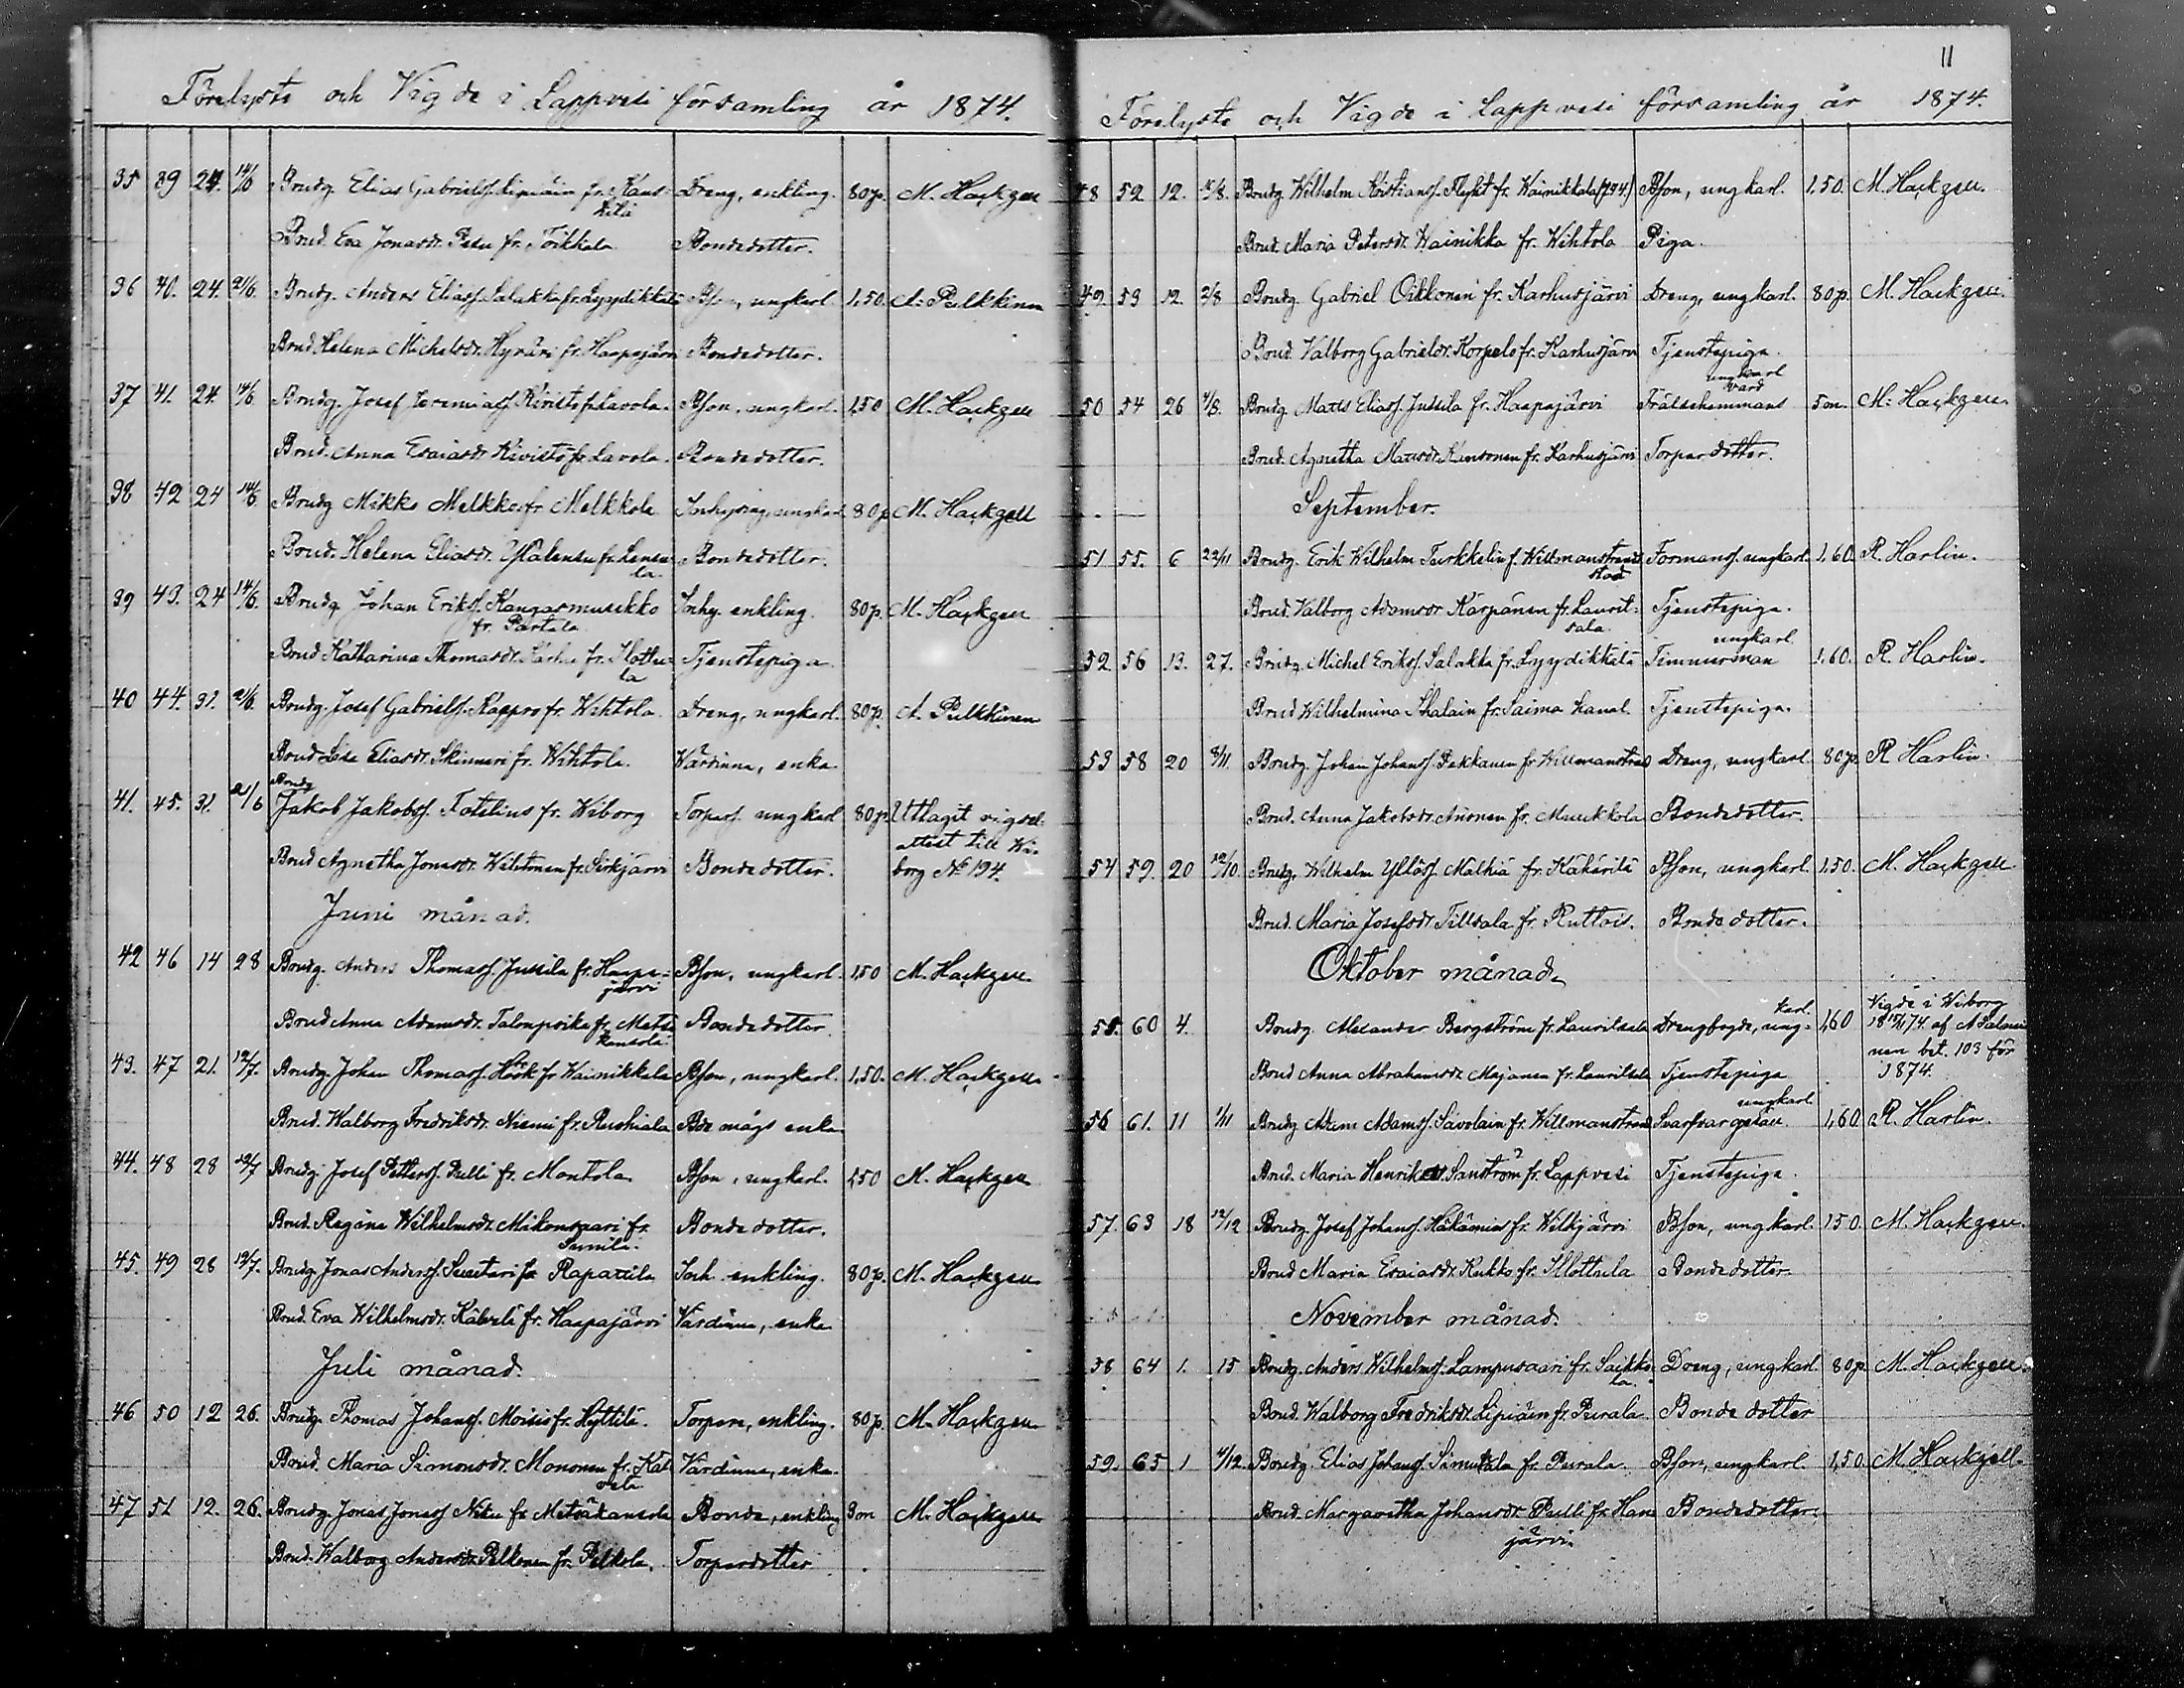 Förelyste och Vigde i Lappvesi församling år 1874.
35 39 24. 14/6 Brudg. Elias Gabrielss. Lipiäin fr. Kans- Dreng, enkling. 80 p. M. Hackzell
kilä
Brud. Eva Jonasdr. Pesu fr. Toikkala Bondedotter.
36 40. 24. 21/6. Brudg. Anders Eliass. Salakka fr. Lyydikkälä Bson, ungkarl 1,50. A. Pulkkinen
Brud. Helena Michelsdr. Hyväri fr. Haapajärvi Bondedotter.
37 41. 24. 14/6 Brudg. Josef Jeremiass. Kivistö fr. Lavola. Bson, ungkarl. 1,50 M. Hackzell
Brud. Anna Esaiasdr. Kivistö fr. Lavola. Bondedotter.
38 42 24 14/6. Brudg Mikko Melkko fr. Melkkola Inhysing, ungkarl 80 p M. Hackzell
Brud. Helena Eliasdr. fr. Lensu- Bondedotter.
la.
39 43. 24 14/6. Brudg. Johan Erikss. Kangasmuukko Inhy. enkling. 80 p. M. Hackzell
fr. Partala
Brud Katharina Thomasdr. Karhu fr. Ilottu- Tjenstepiga
la
40 44. 31. 21/6. Brudg. Josef Gabrielss. Kaapro fr. Wihtola. Dreng, ungkarl. 80 p. A. Pulkkinen
Brud Lisa Eliasdr. Skinnari fr. Wihtola. Värdinna, enka
Brudg
41. 45. 31. 21/6 Jakob Jakobss. Fotelius fr. Wiborg Torpares. ungkarl 80 p. Uttagit vigsel-
attest till Wi-
Brud Agnetha Jonasdr. Wihtonen fr. Sirkjärvi Bondedotter. borg No 194.
Juni månad.
42 46 14 28 Brudg. Anders Thomass. Jussila fr. Haapa- Bson, ungkarl. 1,50 M. Hackzell
järvi
Brud Anna Adamsdr. Talonpoika fr. Metsä Bondedotter
kansola.
43. 47 21. 12/7. Brudg. Johan Thomass. Höök fr. Wainikkala Bson, ungkarl. 1,50. M. Hackzell
Brud. Walborg Fredriksdr. Niemi fr. Ruohiala Bde mågs enka
44. 48 28 12/7 Brudg. Josef Petterss. Pulli fr. Montola Bson, ungkarl. 1,50 M. Hackzell
Brud. Regina Wilhelmsdr. Mikonsaari fr. Bondedotter.
45. 49 28 12/7. Brudg. Jonas Anderss. Suutari fr. Rapattila Inh. enkling. 80 p. M. Hackzell
Brud. Eva Wilhelmsdr. Käbeli fr. Haapajärvi Värdinna, enka
Juli månad.
46 50 12 26. Brudg. Thomas Johanss. Moisio fr. Hyttilä. Torpare, enkling. 80 p. M. Hackzell
Brud. Maria Simonsdr. Mononen fr. Kal Värdinna, enka.
47 51 12. 26. Brudg. Jonas Jonass Niku fr. Metsäkansola Bonde, enkling 3 m M. Hackzell
Brud. Walborg Andersdr. Pelkonen fr. Pelkola. Torparedotter
11
Förelyste och Vigde i Lappvesi församling år 1874.
48 52 12. Brudg. Wilhelm Kristianss. fr. Wainikkala Bson, ungkarl. 1,50. M. Hackzell.
Brud. Maria Petersdr. Wainikka fr. Wihtola Piga.
49. 53 12. 2/8 Brudg. Gabriel Oikkonen fr. Karhusjärvi Dreng, ungkarl. 80 p. M. Hackzell.
Brud. Valborg Gabrielsdr. Korpela fr. Karhusjärvi Tjenstepiga.
ungkarl
värd
50 54 26 Brudg. Matts Eliass. Jussila fr. Haapajärvi Frälsehemmans 5 m. M. Hackzell
Brud. Agnetha Mattsdr. Kansonen fr. Karhusjärvi Torpardotter.
September.
51 55. 6 22/11 Brudg. Erik Wilhelm Turkkelin f. Willmanstrands Formanss. ungkarl. 1,60. R. Harlin.
stad
Brud. Valborg Adamsdr Kärpänen fr. Laurit- Tjenstepiga.
sala
ungkarl
52 56 13. 27. Brudg. Michel Erikss. Salakka fr. Lyydikkälä Timmerman 1,60. R. Harlin.
Brud Wilhelmina Skalain fr. Saima kanal Tjenstepiga.
53 58 20 8/11. Brudg. Johan Johanss. Pakkanen fr. Willmanstrand Dreng, ungkarl. 80 p. R Harlin.
Brud. Anna Jakobsdr. Ahonen fr. Muukkola Bondedotter.
54 59. 20 12/10. Brudg. Wilhelm Mälkiä fr. Kähärilä Bson, ungkarl. 1,50. M. Hackzell
Brud. Maria Josefsdr. Tillsala fr. Ruttois. Bondedotter.
Oktober månad.
karl. Vigde i Wiborg
55. 60 4. Brudg. Alexander Bergström fr. Lauritsala Drengbogde, ung- 1,60 af A Salo-
nen bet. 103 för
Brud Anna Abrahamsdr Majanen fr. Lauritsala Tjenstepiga 1874.
ungkarl
56 61. 11 1/11 Brudg. Adam Adamss. Savolain fr. Willmanstrand Svarfvar gesäll 1,60. R. Harlin.
Brud. Maria Henriksdr. Sanström fr. Lappvesi Tjenstepiga.
57. 63 18 12/12 Brudg. Josef Johanss. Hälämies fr. Wilkjärvi Bson, ungkarl. 1,50. M. Hackzell.
Brud Maria Esaiasdr. Kukko fr. Illottula Bondedotter
November månad.
58 64 1. 15 Brudg. Anders Wilhelmss. Lampusaari fr. Saikko Dreng, ungkarl. 80 p. M. Hackzell.
la.
Brud. Walborg Fredriksdr. Lipiäin fr. Purala Bonde dotter
59. 65 1 Brudg. Elias Johanss. Simukala fr. Purala Bson, ungkarl. 1,50. M. Hackzell.
Brud. Margaretha Johansdr Pulli fr. Han Bondedotter.
järvi.